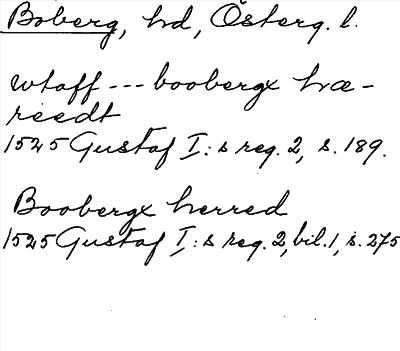 Boberg, hd, Österg. l.
wtaff --- boobergx hræ-
reedt
1525 Gustaf I:s reg. 2, s. 189.
Boobergx herred
1525 Gustaf I:s reg. 2, bil. 1, s. 275